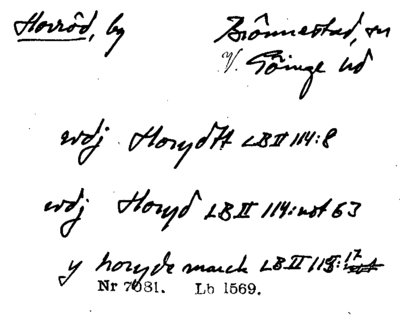 Hovröd, by Brönnestad, sn
V. Göinge hd
wdj Horydh LB II 114:8
wdj Horyd LB II 114: not 63
y horyde marck LB II 115: 17
Nr 7081. Lb 1569.